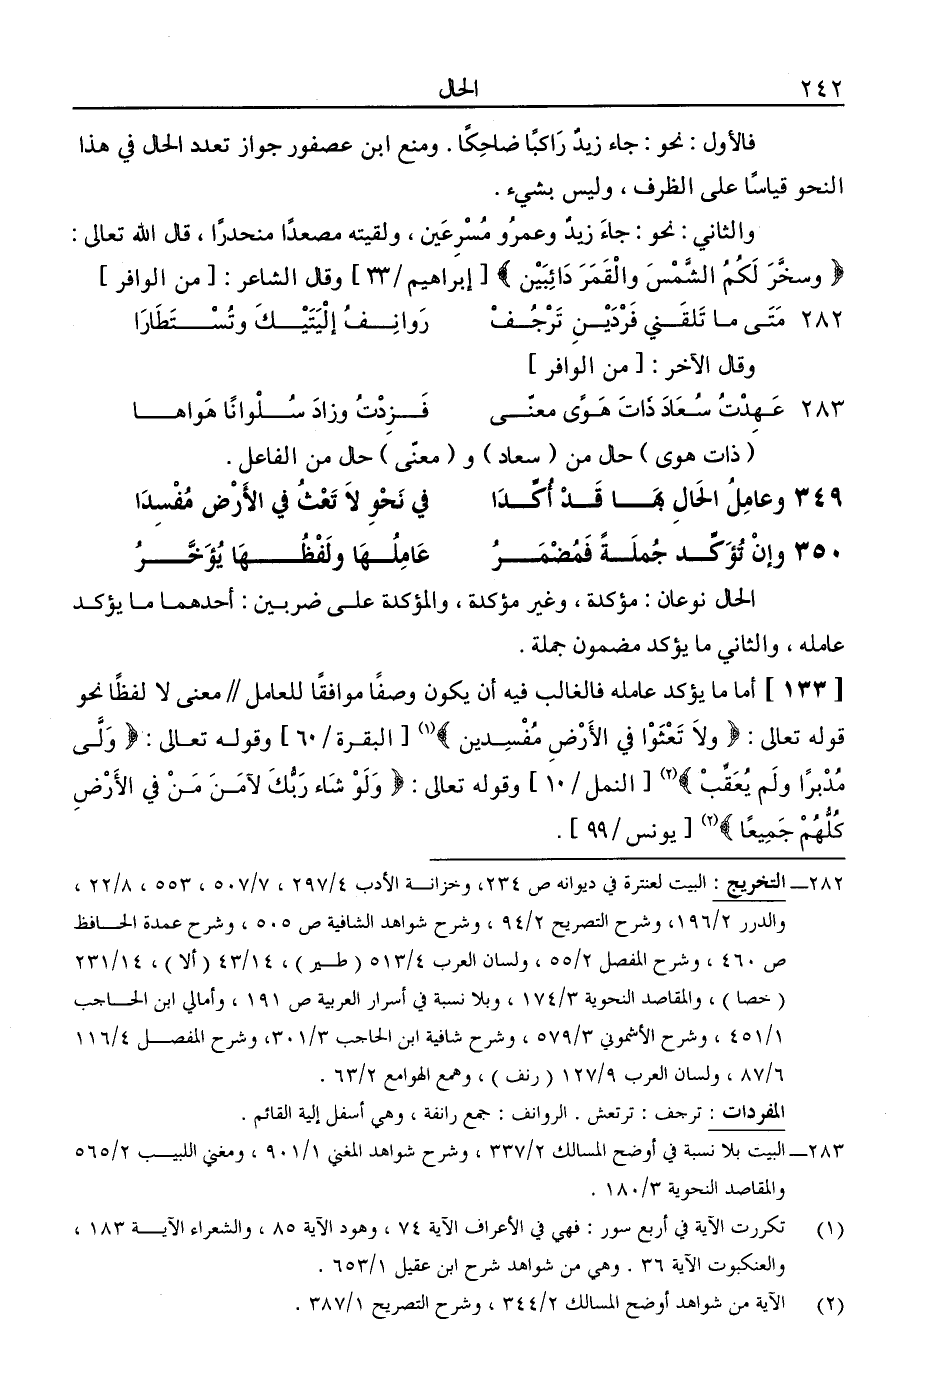 ٢٤٢ الحال
فالأول : نحو : جاء زيدٌ رَاكبًا ضاحِكًا . ومنع ابن عصفور جواز تعدد الحال في هذا
النحو قياسًا على الظرف ، وليس بشيء .
والثاني : نحو : جاءَ زيدٌ وعمرو مُسْرعَين ، ولقيته مصعدًا منحدرًا ، قال الله تعالى :
﴿ وسخَّرَ لَكُمُ الشَّمْسَ والْقَمَرَ دَائِبَيْن ﴾ [ إبراهيم /٣٣ ] وقال الشاعر : [ من الوافر ]
٢٨٢ مَتَى مـا تَلقَـني فَرْدَيْـنِ تَرْجُـفْ رَوانِـفُ إِلْيَتَيْـكَ وتُسْـتَطَارَا
وقال الآخر : [ من الوافر ]
٢٨٣ عَـهِدْتُ سُعَادَ ذَاتَ هَـوًى معنّـى فَـزِدْتُ وزادَ سُـلْوانًا هَواهـا
( ذات هوى ) حال من ( سعاد ) و ( معنّى ) حال من الفاعل .
٣٤٩ وعامِلُ الحَالِ بِهَـا قَـدْ أُكِّـدَا في نَحْوِ لاَ تَعْثُ في الأَرْضِ مُفْسِدَا
٣٥٠ وإِنْ تُؤَكِّـد جُملَـةً فَمُضْمَـرُ عَامِلُـهَا ولَفْظُـهَا يُؤَخَّـرُ
الحال نوعان : مؤكدة ، وغير مؤكدة ، والمؤكدة علـى ضربين : أحدهمـا مـا يؤكـد
عامله ، والثاني ما يؤكد مضمون جملة .
[ ١٣٣ ] أما ما يؤكد عامله فالغالب فيه أن يكون وصفًا موافقًا للعامل // معنى لا لفظًا نحو
قوله تعالى : ﴿ ولاَ تَعْثَوْا في الأَرْضِ مفْسِـدين ﴾(١) [ البقـرة /٦٠ ] وقولـه تعـالى : ﴿ وَلَّى
مُدْبرًا ولَم يُعَقِّبْ ﴾(٢) [ النمل /١٠ ] وقوله تعالى : ﴿ وَلَوْ شَاء رَبُّكَ لآمَـنَ مَـنْ في الأَرْضِ
كُلُّهُمْ جَمِيعًا ﴾(٢) [ يونس /٩٩ ] .
٢٨٢ــ التخريج : البيت لعنترة في ديوانه ص ٢٣٤، وخزانـة الأدب ٢٩٧/٤ ، ٥٠٧/٧ ، ٥٥٣ ، ٢٢/٨ ،
والدرر ١٩٦/٢، وشرح التصريح ٩٤/٢ ، وشرح شواهد الشافية ص ٥٠٥ ، وشرح عمدة الحـافظ
ص ٤٦٠ ، وشرح المفصل ٥٥/٢ ، ولسان العرب ٥١٣/٤ ( طـير ) ، ٤٣/١٤ ( ألا ) ، ٢٣١/١٤
( خصا ) ، والمقاصد النحوية ١٧٤/٣ ، وبلا نسبة في أسرار العربية ص ١٩١ ، وأمالي ابن الحـاجب
٤٥١/١ ، وشرح الأشموني ٥٧٩/٣ ، وشرح شافية ابن الحاجب ٣٠١/٣، وشرح المفصـل ١١٦/٤
٨٧/٦ ، ولسان العرب ١٢٧/٩ ( رنف ) ، وهمع الهوامع ٦٣/٢ .
المفردات : ترجف : ترتعش . الروانف : جمع رانفة ، وهي أسفل إلية القائم .
٢٨٣ــ البيت بلا نسبة في أوضح المسالك ٣٣٧/٢ ، وشرح شواهد المغني ٩٠١/١ ، ومغني اللبيـب ٥٦٥/٢
والمقاصد النحوية ١٨٠/٣ .
(١) تكررت الآية في أربع سور : فهي في الأعراف الآية ٧٤ ، وهود الآية ٨٥ ، والشعراء الآيـة ١٨٣ ،
والعنكبوت الآية ٣٦ . وهي من شواهد شرح ابن عقيل ٦٥٣/١ .
(٢) الآية من شواهد أوضح المسالك ٣٤٤/٢ ، وشرح التصريح ٣٨٧/١ .